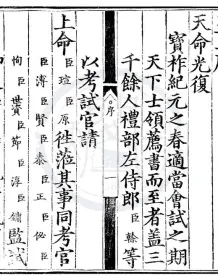 天命光復
寶祚紀元之春適當會試之期
天下士領薦書而至者蓋三
千餘人禮部左侍郎臣榦等
以考試官請
上命臣瑄臣原徃蒞其事同考官
臣溥臣賢臣泰臣正臣祕臣
恂臣世賚臣節臣淳臣鏞監試
序